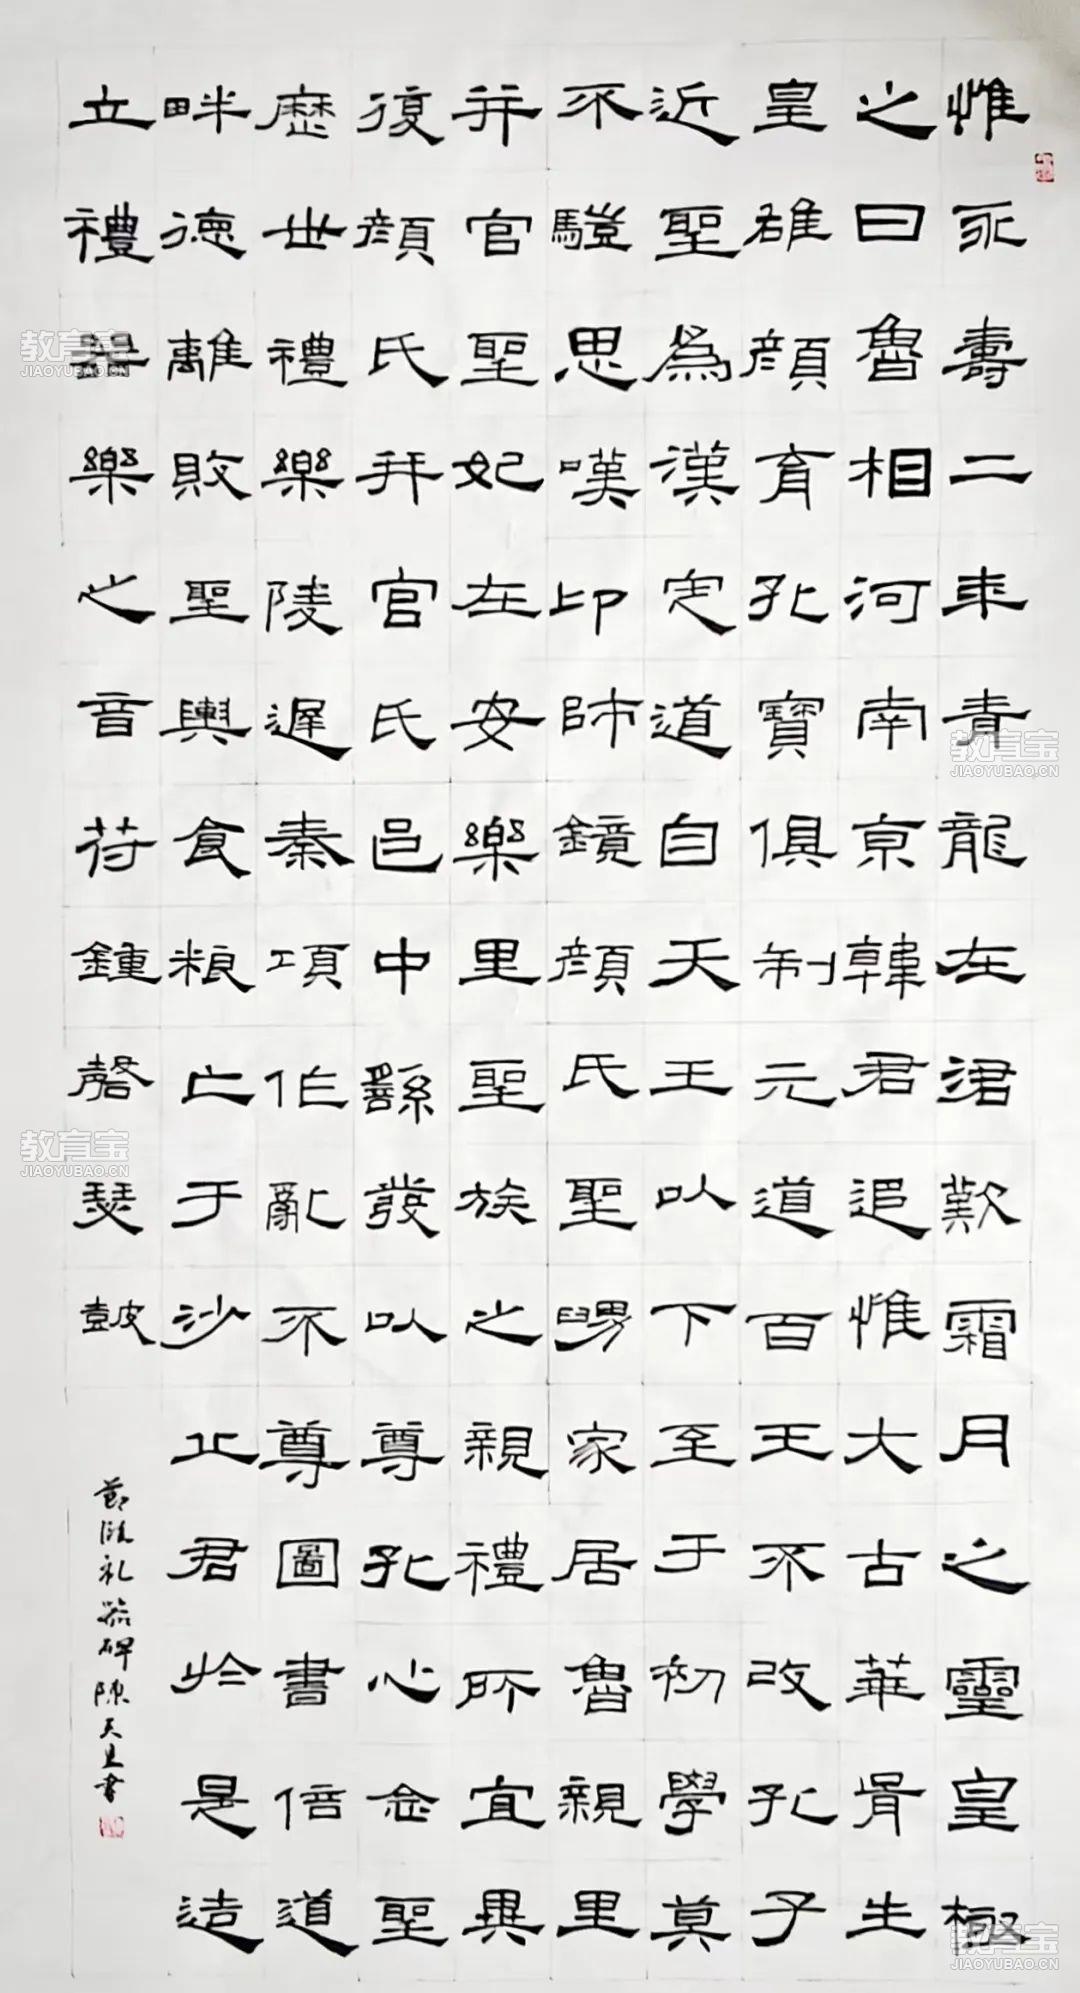 惟永壽二年青龍在涒歎霜月之靈皇極
之日魯相河南京韓君追惟大古華胥生
皇雄顏育孔寶俱制元道百王不改孔子
近聖為漢定道自天王以下至于初學莫
不驥思嘆卬師鏡顏氏聖舅家居魯親里
并官聖妃在安樂里聖族之親禮所宜異
復顏氏并官氏邑中繇發以尊孔心念聖
歷世禮樂陵遲秦項作亂不尊圖書倍道
畔德離敗聖輿食粮亡于沙丘君於是造
立禮器樂之音符鍾磬瑟鼓
節臨礼器碑陳天 書
教育宝
JIAOYUBAO.CN
教育宝
JIAOYUBAO.CN
教育宝
JIAOYUBAO.CN
教育宝
JIAOYUBAO.CN